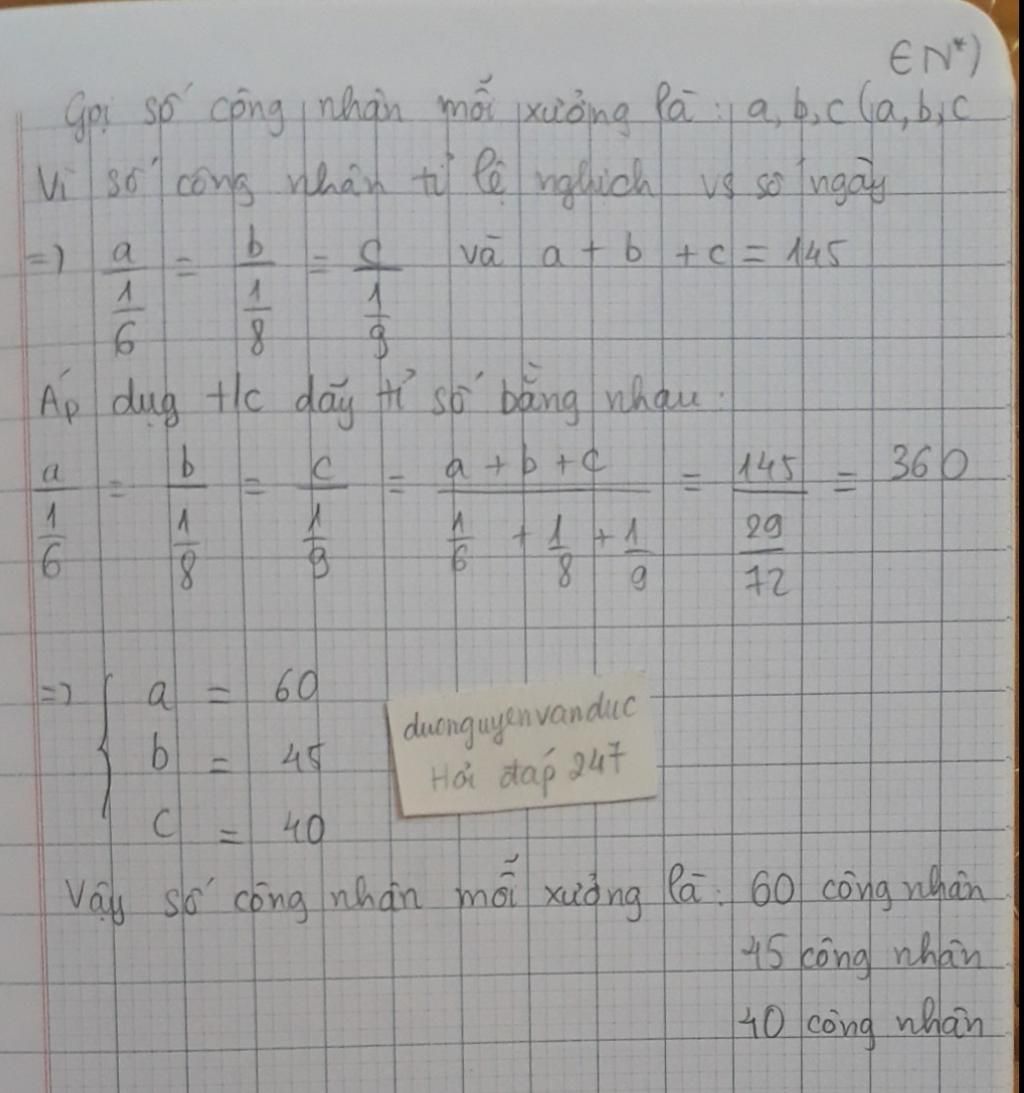 ∈ N*)
Gọi số công nhân mỗi xưởng là: a, b, c (a, b, c
Vì số công nhân tỉ lệ nghịch vs số ngày
=> a/(1/6) = b/(1/8) = c/(1/9) và a + b + c = 145
Áp dụg t/c dãy tỉ số bằng nhau:
a/(1/6) = b/(1/8) = c/(1/9) = (a + b + c)/(1/6 + 1/8 + 1/9) = 145/(29/72) = 360
=> { a = 60
b = 45
c = 40
duonguyenvanduc
Hỏi đáp 247
Vậy số công nhân mỗi xưởng là: 60 công nhân
45 công nhân
40 công nhân